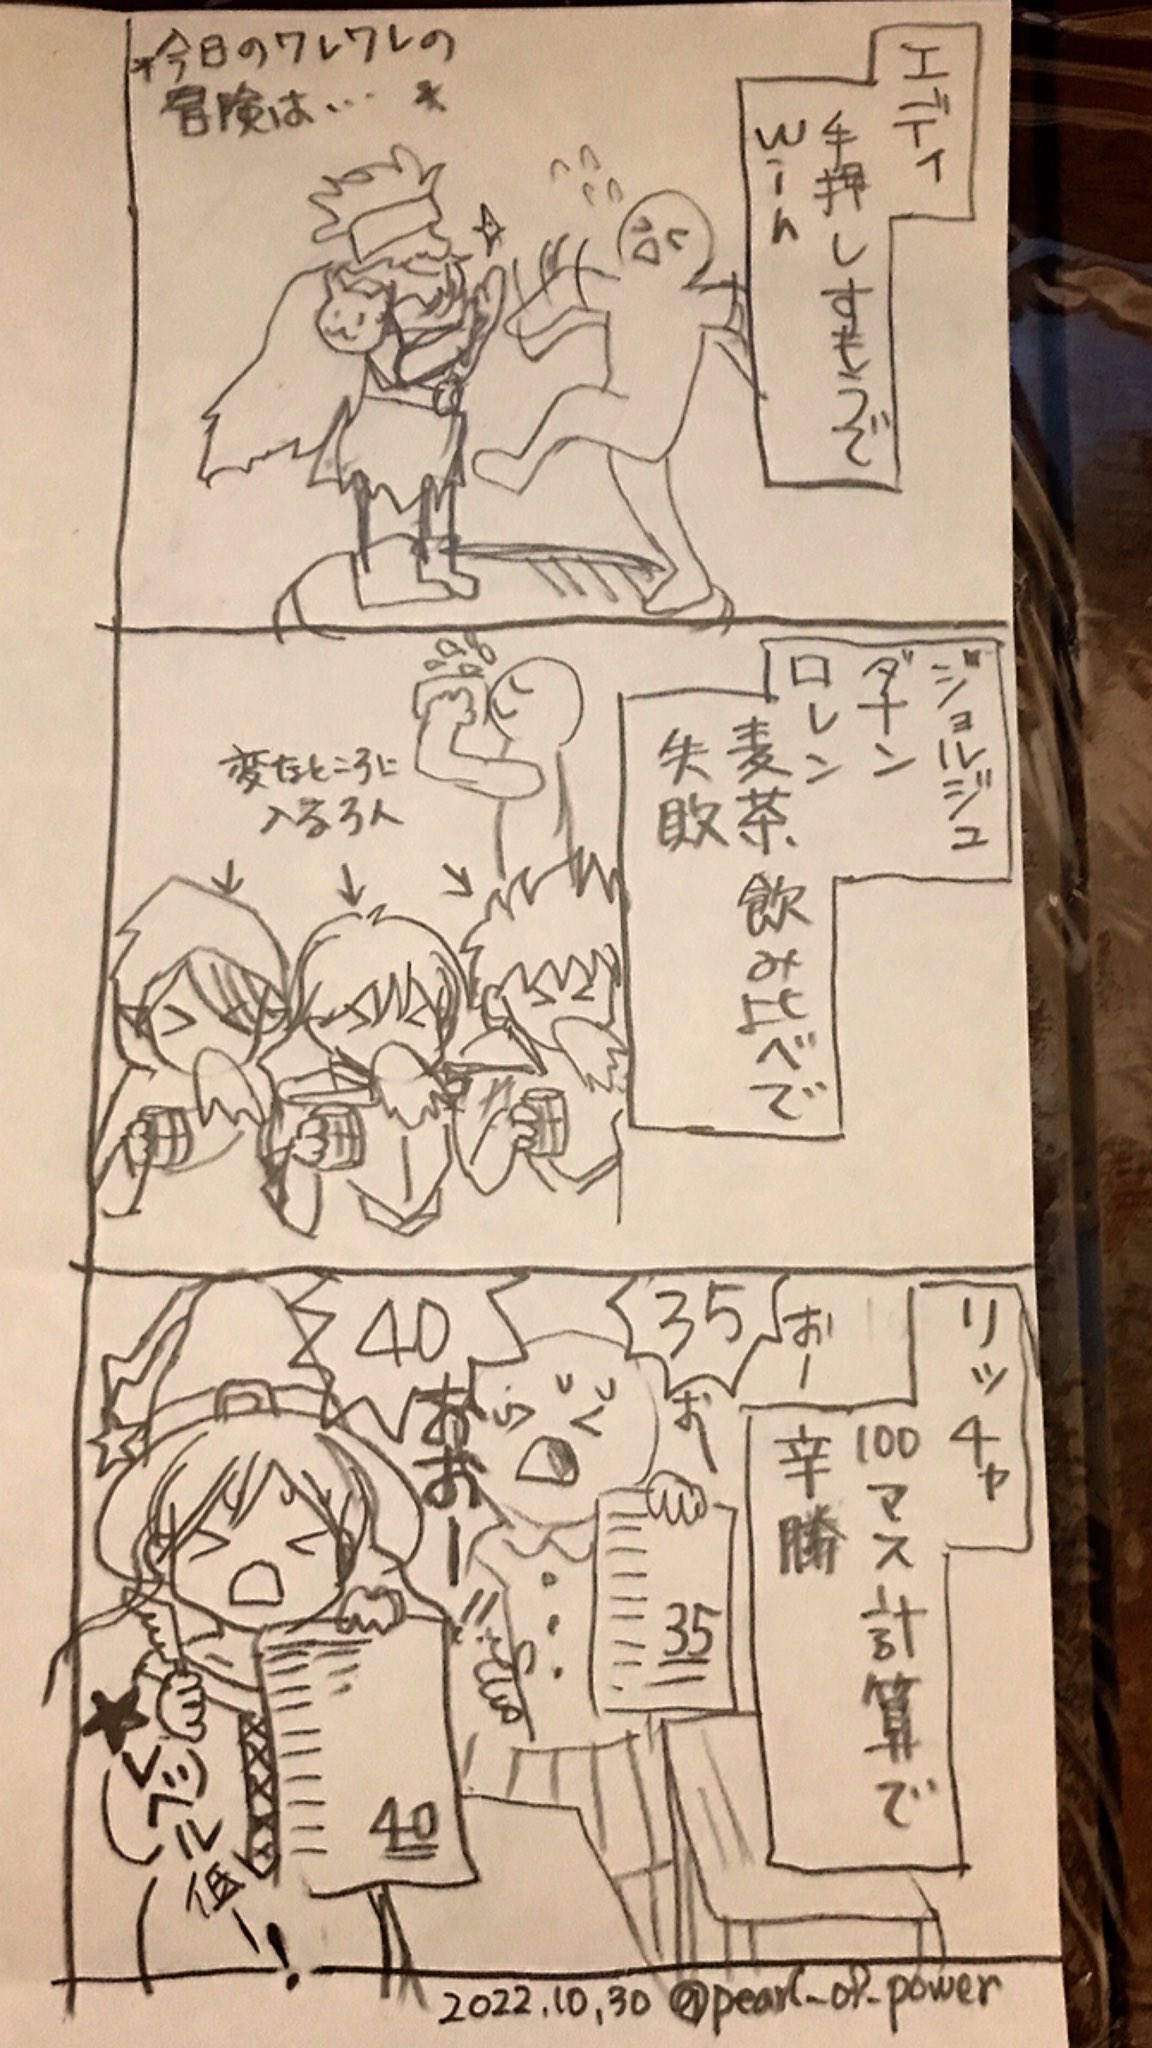 *今日のワレワレの
冒険は… *
エディ
手押しずもうで
win
ジョルジュ
ダナン
ロレン
麦茶飲み比べで
失敗
変なところに
入る3人
リッチャ
100マス計算で
辛勝
おー
35
おー
40
おおー
35
40
★レベル
低ー!
2022.10.30 @pearl_of_power